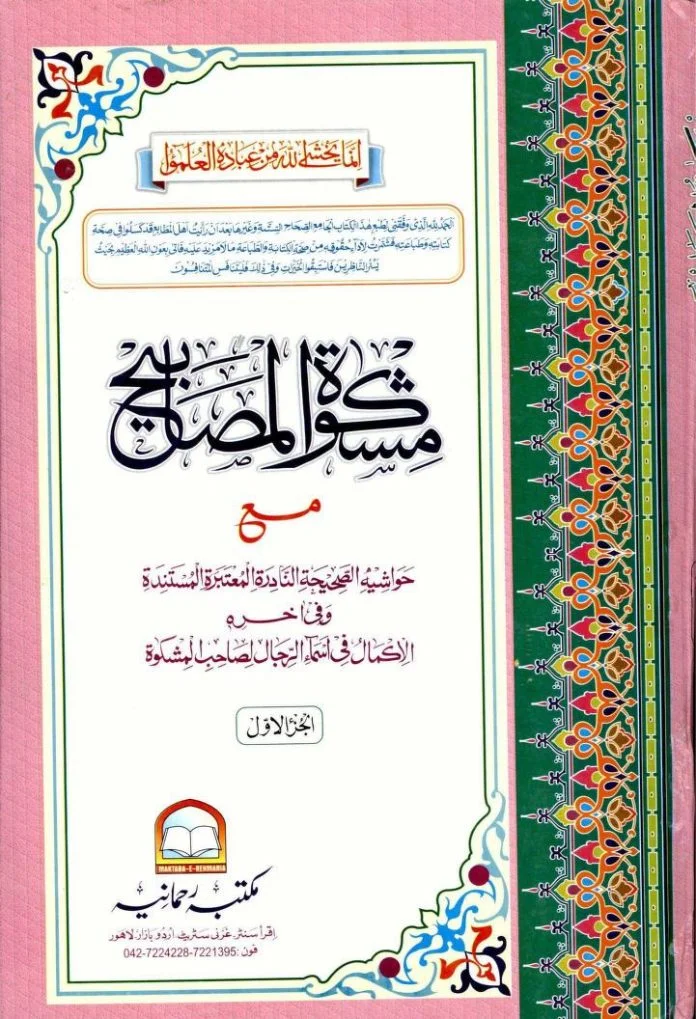 إنما يخشى الله من عباده العلمؤا
الحمد لله الذى وفقنى لطبع هذا الكتاب الجامع الصحاح الستة وغيرها بعد ان رأيت اهل المطابع قد كسلوا فى صحة
كتابته وطباعته فشمرت لاداء حقوقه من صحة الكتابة والطباعة مالا مزيد عليه فاتى بعون الله العظيم بحيث
يسر الناظرين فاستبقوا الخيرات وفى ذلك فليتنافس المتنافسون
مشكوة المصابيح
مع
حواشيه الصحيحة النادرة المعتبرة المستندة
وفى اخره
الإكمال فى أسماء الرجال لصاحب المشكوة
الجزء الاول
MAKTABA-E-REHMANIA
مکتبہ رحمانیہ
اقرأ سنٹر غزنی سٹریٹ اردو بازار لاہور
فون: 042-7224228-7221395